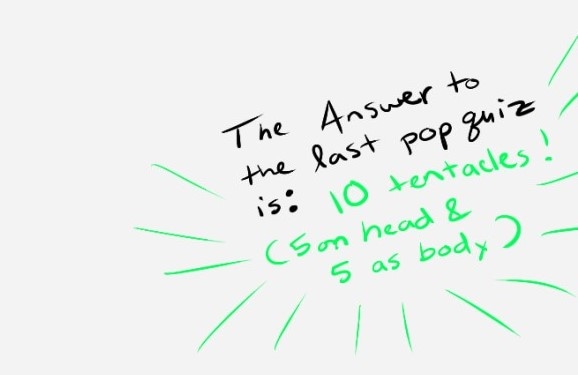 The Answer to
the last pop quiz
is: 10 tentacles!
(5 on head &
5 as body)